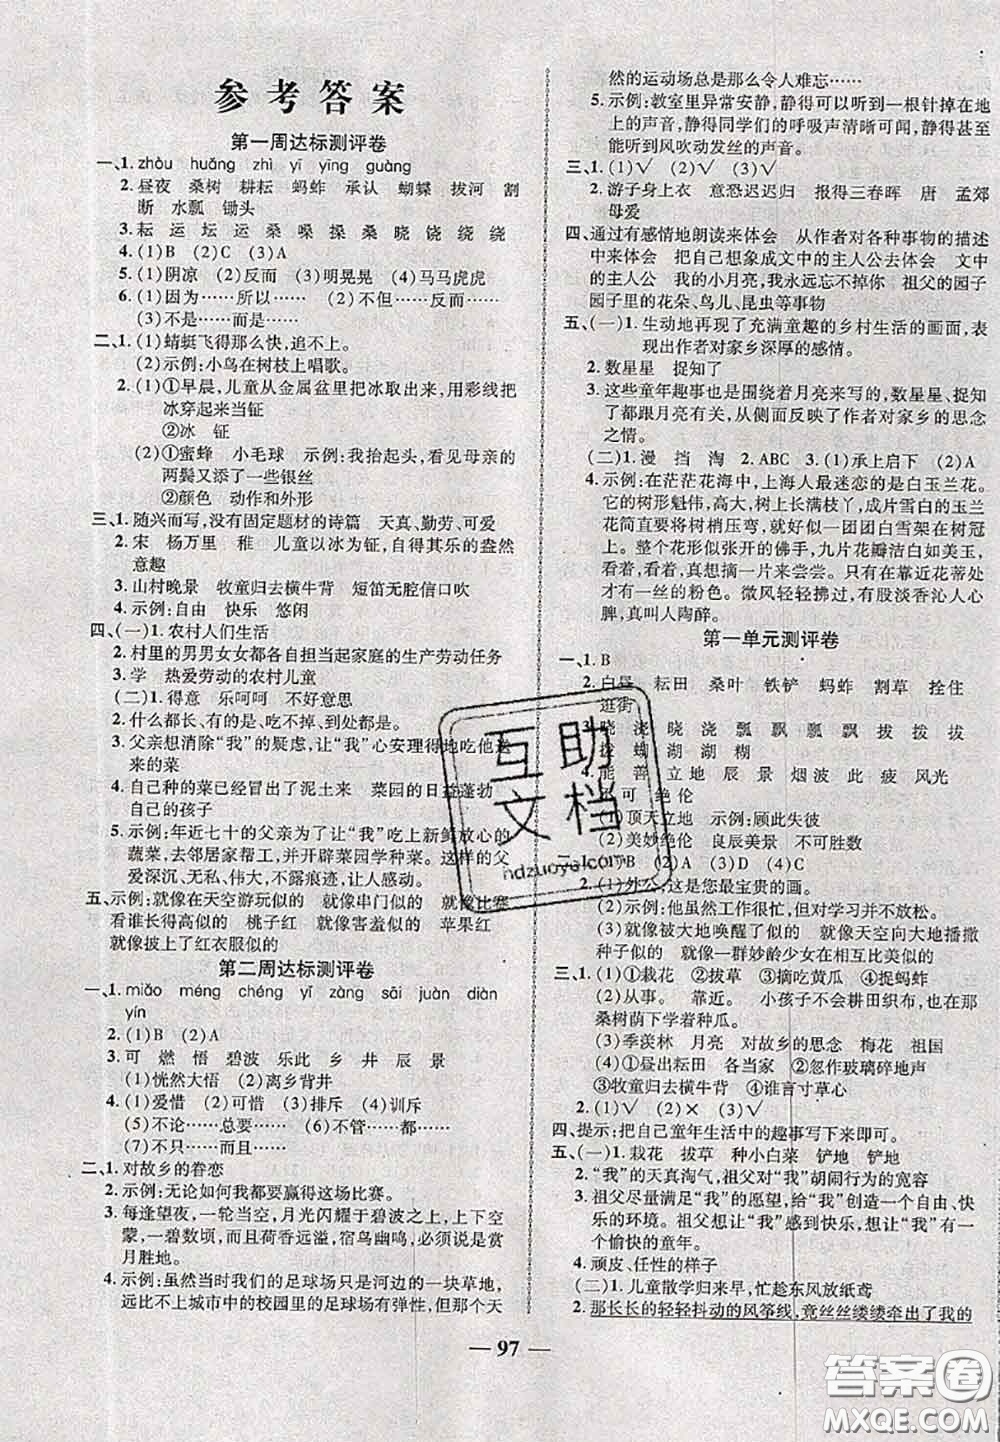 参考答案
第一周达标测评卷
一、1. zhòu huǎng zhì yī yīng guàng
2. 昼夜 桑树 耕耘 蚂蚱 承认 蝴蝶 拔河 割
断 水瓢 锄头
3. 耘 运 坛 运 桑 嗓 操 桑 晓 饶 绕 绕
4. (1)B (2)C (3)A
5. (1)阴凉 (2)反而 (3)明晃晃 (4)马马虎虎
6. (1)因为……所以…… (2)不但……反而……
(3)不是……而是……
二、1. (1)蜻蜓飞得那么快,追不上。
(2)示例:小鸟在树枝上唱歌。
2. (1)①早晨,儿童从金属盆里把冰取出来,用彩线把
冰穿起来当钲
②冰 钲
(2)①蜜蜂 小毛球 示例:我抬起头,看见母亲的
两鬓又添了一些银丝
②颜色 动作和外形
三、1. 随兴而写,没有固定题材的诗篇 天真、勤劳、可爱
2. 宋 杨万里 稚 儿童以冰为钲,自得其乐的盎然
意趣
3. 山村晚景 牧童归去横牛背 短笛无腔信口吹
4. 示例:自由 快乐 悠闲
四、(一)1. 农村人们生活
2. 村里的男男女女都各自担当起家庭的生产劳动任务
3. 学 热爱劳动的农村儿童
(二)1. 得意 乐呵呵 不好意思
2. 什么都长、有的是、吃不掉,到处都是。
3. 父亲想消除“我”的疑虑,让“我”心安理得地吃他送
来的菜
4. 自己种的菜已经冒出了泥土来 菜园的日益蓬勃
自己的孩子
5. 示例:年近七十的父亲为了让“我”吃上新鲜放心的
蔬菜,去邻居家帮工,并开辟菜园学种菜。这样的父
爱深沉、无私、伟大,不露痕迹,让人感激。
五、示例:就像在天空游玩似的 就像串门似的 就像比赛
看谁长得高似的 桃子红 就像害羞似的 苹果红
就像披上了红衣服似的
第二周达标测评卷
一、1. miǎo méng chéng yī zàng sāi juàn diàn
yín
2. (1)B (2)A
3. 可 燃 悟 碧波 乐此 乡 井 辰 景
(1)恍然大悟 (2)离乡背井
4. (1)爱惜 (2)可惜 (3)排斥 (4)训斥
(5)不论……总要…… (6)不管……都……
(7)不只……而且……
二、1. 对故乡的眷恋
2. 示例:无论如何我都要赢得这场比赛。
3. 每逢望夜,一轮当空,月光闪耀于碧波之上,上下空
蒙,一碧数顷,而且荷香远溢,宿鸟幽鸣,必可真是赏
月胜地。
4. 示例:虽然当时我们的足球场只是河边的一块草地,
远比不上城市中的校园里的足球场有弹性,但那个天
然的运动场总是那么令人难忘……
5. 示例:教室里异常安静,静得可以听到一根针掉在地
上的声音,静得同学们的呼吸声清晰可闻,静得甚至
能听到风吹动发丝的声音。
三、1. (1)√ (2)√ (3)√
2. 游子身上衣 意恐迟迟归 报得三春晖 唐 孟郊
母爱
四、通过有感情地朗读来体会 从作者对各种事物的描述
中来体会 把自己想象成文中的主人公去体会 文中
的主人公 我的小月亮,我永远忘不掉你 祖父的园子
园子里的花朵、鸟儿、昆虫等事物
五、(一)1. 生动地再现了充满童趣的乡村生活的画面,表
现出作者对家乡深厚的感情。
2. 数星星 捉知了
3. 这些童年趣事也是围绕着月亮来写的,数星星、捉知
了都跟月亮有关,从侧面反映了作者对家乡的思念
之情。
(二)1. 漫 挡 淘 2. ABC 3. (1)承上启下 (2)A
4. 示例:在茫茫花海中,上海人最迷恋的是白玉兰花。
它的树形魁伟,高大,树上长满枝丫,成片雪白的玉兰
花简直要将树梢压弯,就好似一团团白雪架在树冠
上。整个花形似张开的佛手,九片花瓣洁白如美玉,
看着看着,真想摘一片来尝尝。只有在靠近花蒂处
才有一丝的粉色。微风轻轻拂过,有股淡香沁人心
脾,真叫人陶醉。
第一单元测评卷
一、1. B
2. 白昼 耘田 桑叶 铁铲 蚂蚱 割草 拴住
逛街
3. 晓 浇 晓 浇 瓢 飘 瓢 飘 拔 拨 拔
拨 蝴 湖 湖 糊
4. 能 善 立地 辰 景 烟波 此 疲 风光
不可 绝伦
(1)顶天立地 示例:顾此失彼
(2)美妙绝伦 良辰美景 不可胜数
B (2)A (3)D (4)C
2. (1)外公,这是您最宝贵的画。
(2)示例:他虽然工作很忙,但对学习并不放松。
(3)就像被大地唤醒了似的 就像天空向大地播撒
种子似的 就像一群妙龄少女在相互比美似的
三、1. (1)①栽花 ②拔草 ③摘吃黄瓜 ④捉蚂蚱
(2)从事。 靠近。 小孩子不会耕田织布,也在那
桑树荫下学着种瓜。
(3)季羡林 月亮 对故乡的思念 梅花 祖国
(4)①昼出耘田 各当家 ②忽作玻璃碎地声
③牧童归去横牛背 ④谁言寸草心
2. (1)√ (2)× (3)√
四、提示:把自己童年生活中的趣事写下来即可。
五、(一)1. 栽花 拔草 种小白菜 铲地 铲地
2. “我”的天真淘气,祖父对“我”胡闹行为的宽容
3. 祖父尽量满足“我”的愿望,给“我”创造一个自由、快
乐的环境。祖父想让“我”感到快乐,想让“我”有一
个愉快的童年。
4. 顽皮、任性的样子
(二)1. 儿童散学归来早,忙趁东风放纸鸢
2. 那长长的轻轻抖动的风筝线,竟丝丝缕缕牵出了我的
97
互助文档
hdzuoye.com
答案圈
MXQE.COM